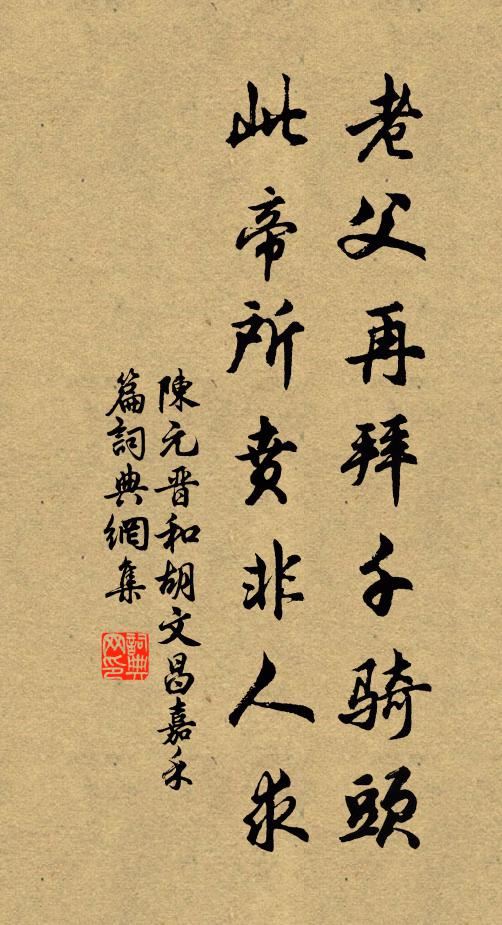 老父再拜千騎頭
此帝所賚非人求
陳元晋和胡文昌嘉禾
篇詞典網集
詞典网印